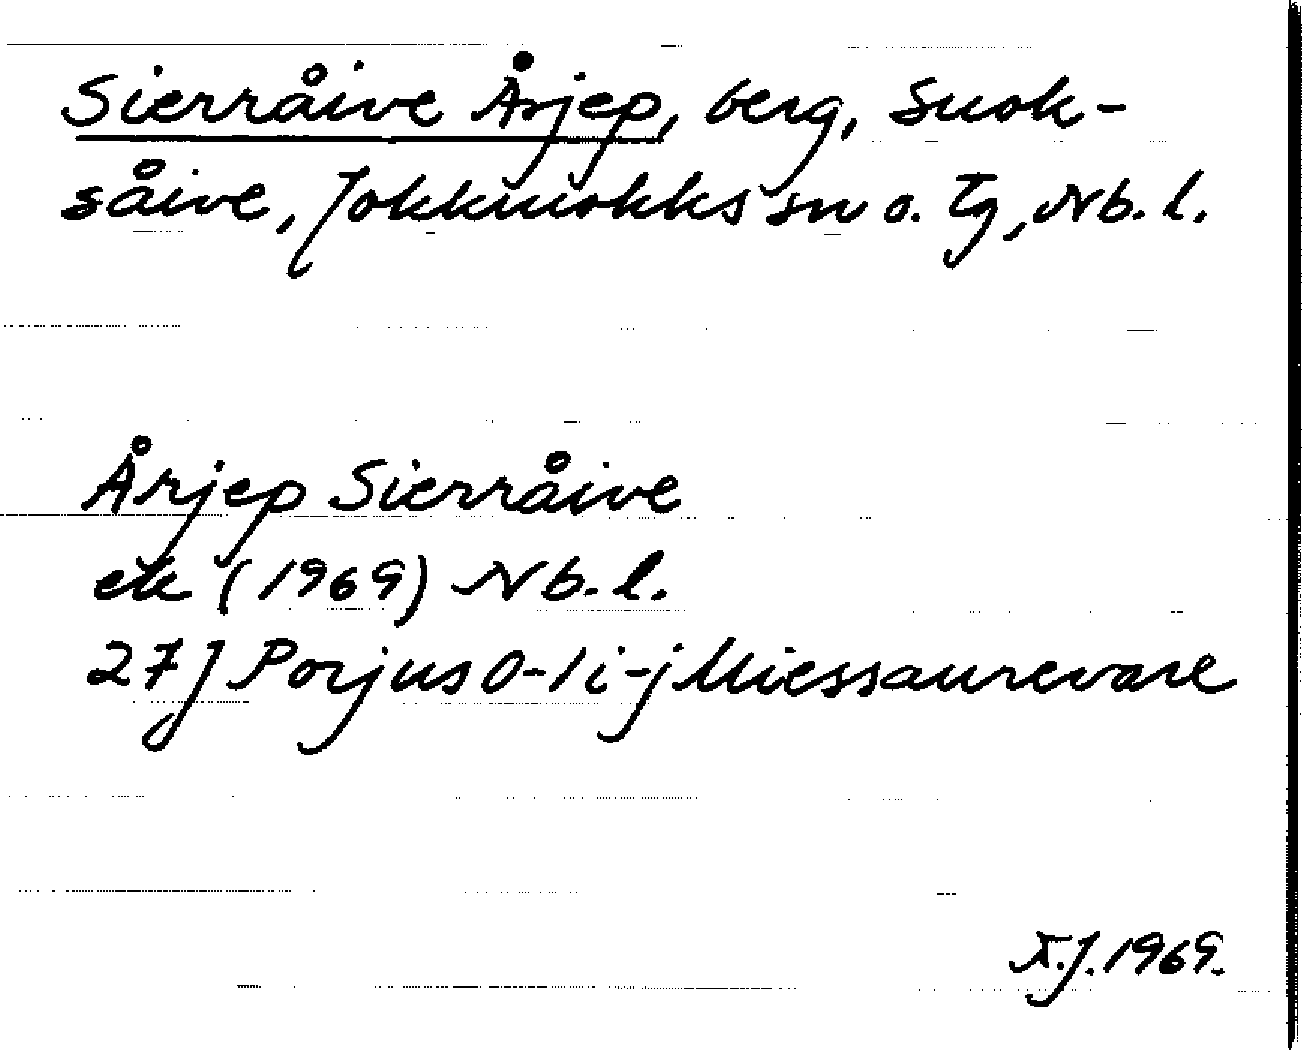 Sierråive Årjep, berg, Suok-
såive, Jokkmokks sn o. tg, Nb. l.
Årjep Sierråive
ek (1969) Nb. l.
27 J Porjus 0-1 i-j Miessaurevare
1969.